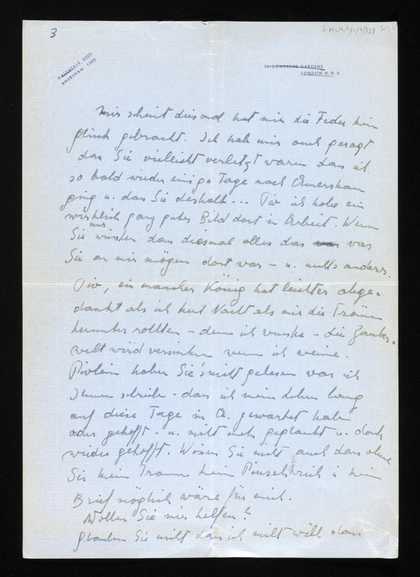 3
LONDON N.W.3
mir scheint diesmal hat mir die Feder kein
glück gebracht. Ich hab mir auch gesagt
dass Sie vielleicht verletzt waren dass ich
so bald wieder einige Tage nach Amersham
ging u. dass Sie deshalb... Tiv ich habe ein
wirklich ganz gutes Bild dort in Arbeit. Wenn
Sie nur wüssten dass diesmal alles das was
Sie an mir mögen dort war - u. nichts anders.
Tiv, ein mancher König hat leichter abge-
dankt als ich heut Nacht als mir die Tränen
herunter rollten - denn ich wusste - die Zauber-
welt wird versinken wenn ich weine.
haben Sie's nicht gelesen was ich
Ihnen schrieb - dass ich mein Leben lang
auf diese Tage in A. gewartet habe
oder gehofft - u. nicht mehr geglaubt u. doch
wieder gehofft. Wissen Sie nicht auch dass ohne
Sie kein Traum kein Pinselstrich u kein
Brief möglich wäre für mich.
Wollen Sie mir helfen?
glauben Sie nicht dass ich nicht will dass